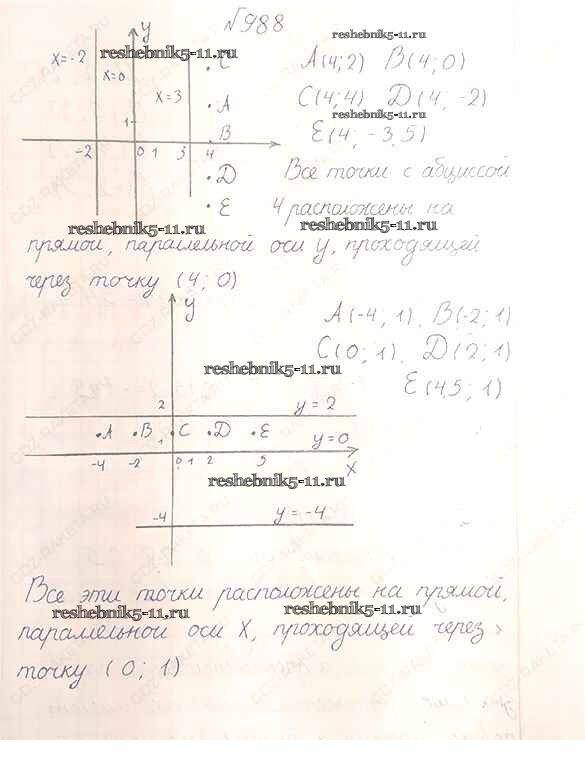 №988
y
x=-2
x=0
x=3
C
A
B
D
E
1
-2 0 1 3 4
A(4;2) B(4;0)
C(4;4) D(4,-2)
E(4,-3,5)
Все точки с абциссой
4 расположены на
прямой, параллельной оси y, проходящей
через точку (4; 0)
y
A(-4; 1), B(-2; 1)
C(0; 1), D(2; 1)
E(4,5; 1)
2
y = 2
A B C D E
1
y=0
-4 -2 0 1 2 5
x
-4
y=-4
Все эти точки расположены на прямой,
параллельной оси X, проходящей через
точку (0; 1)
reshebnik5-11.ru
reshebnik5-11.ru
reshebnik5-11.ru
reshebnik5-11.ru
reshebnik5-11.ru
reshebnik5-11.ru
reshebnik5-11.ru
reshebnik5-11.ru
reshebnik5-11.ru